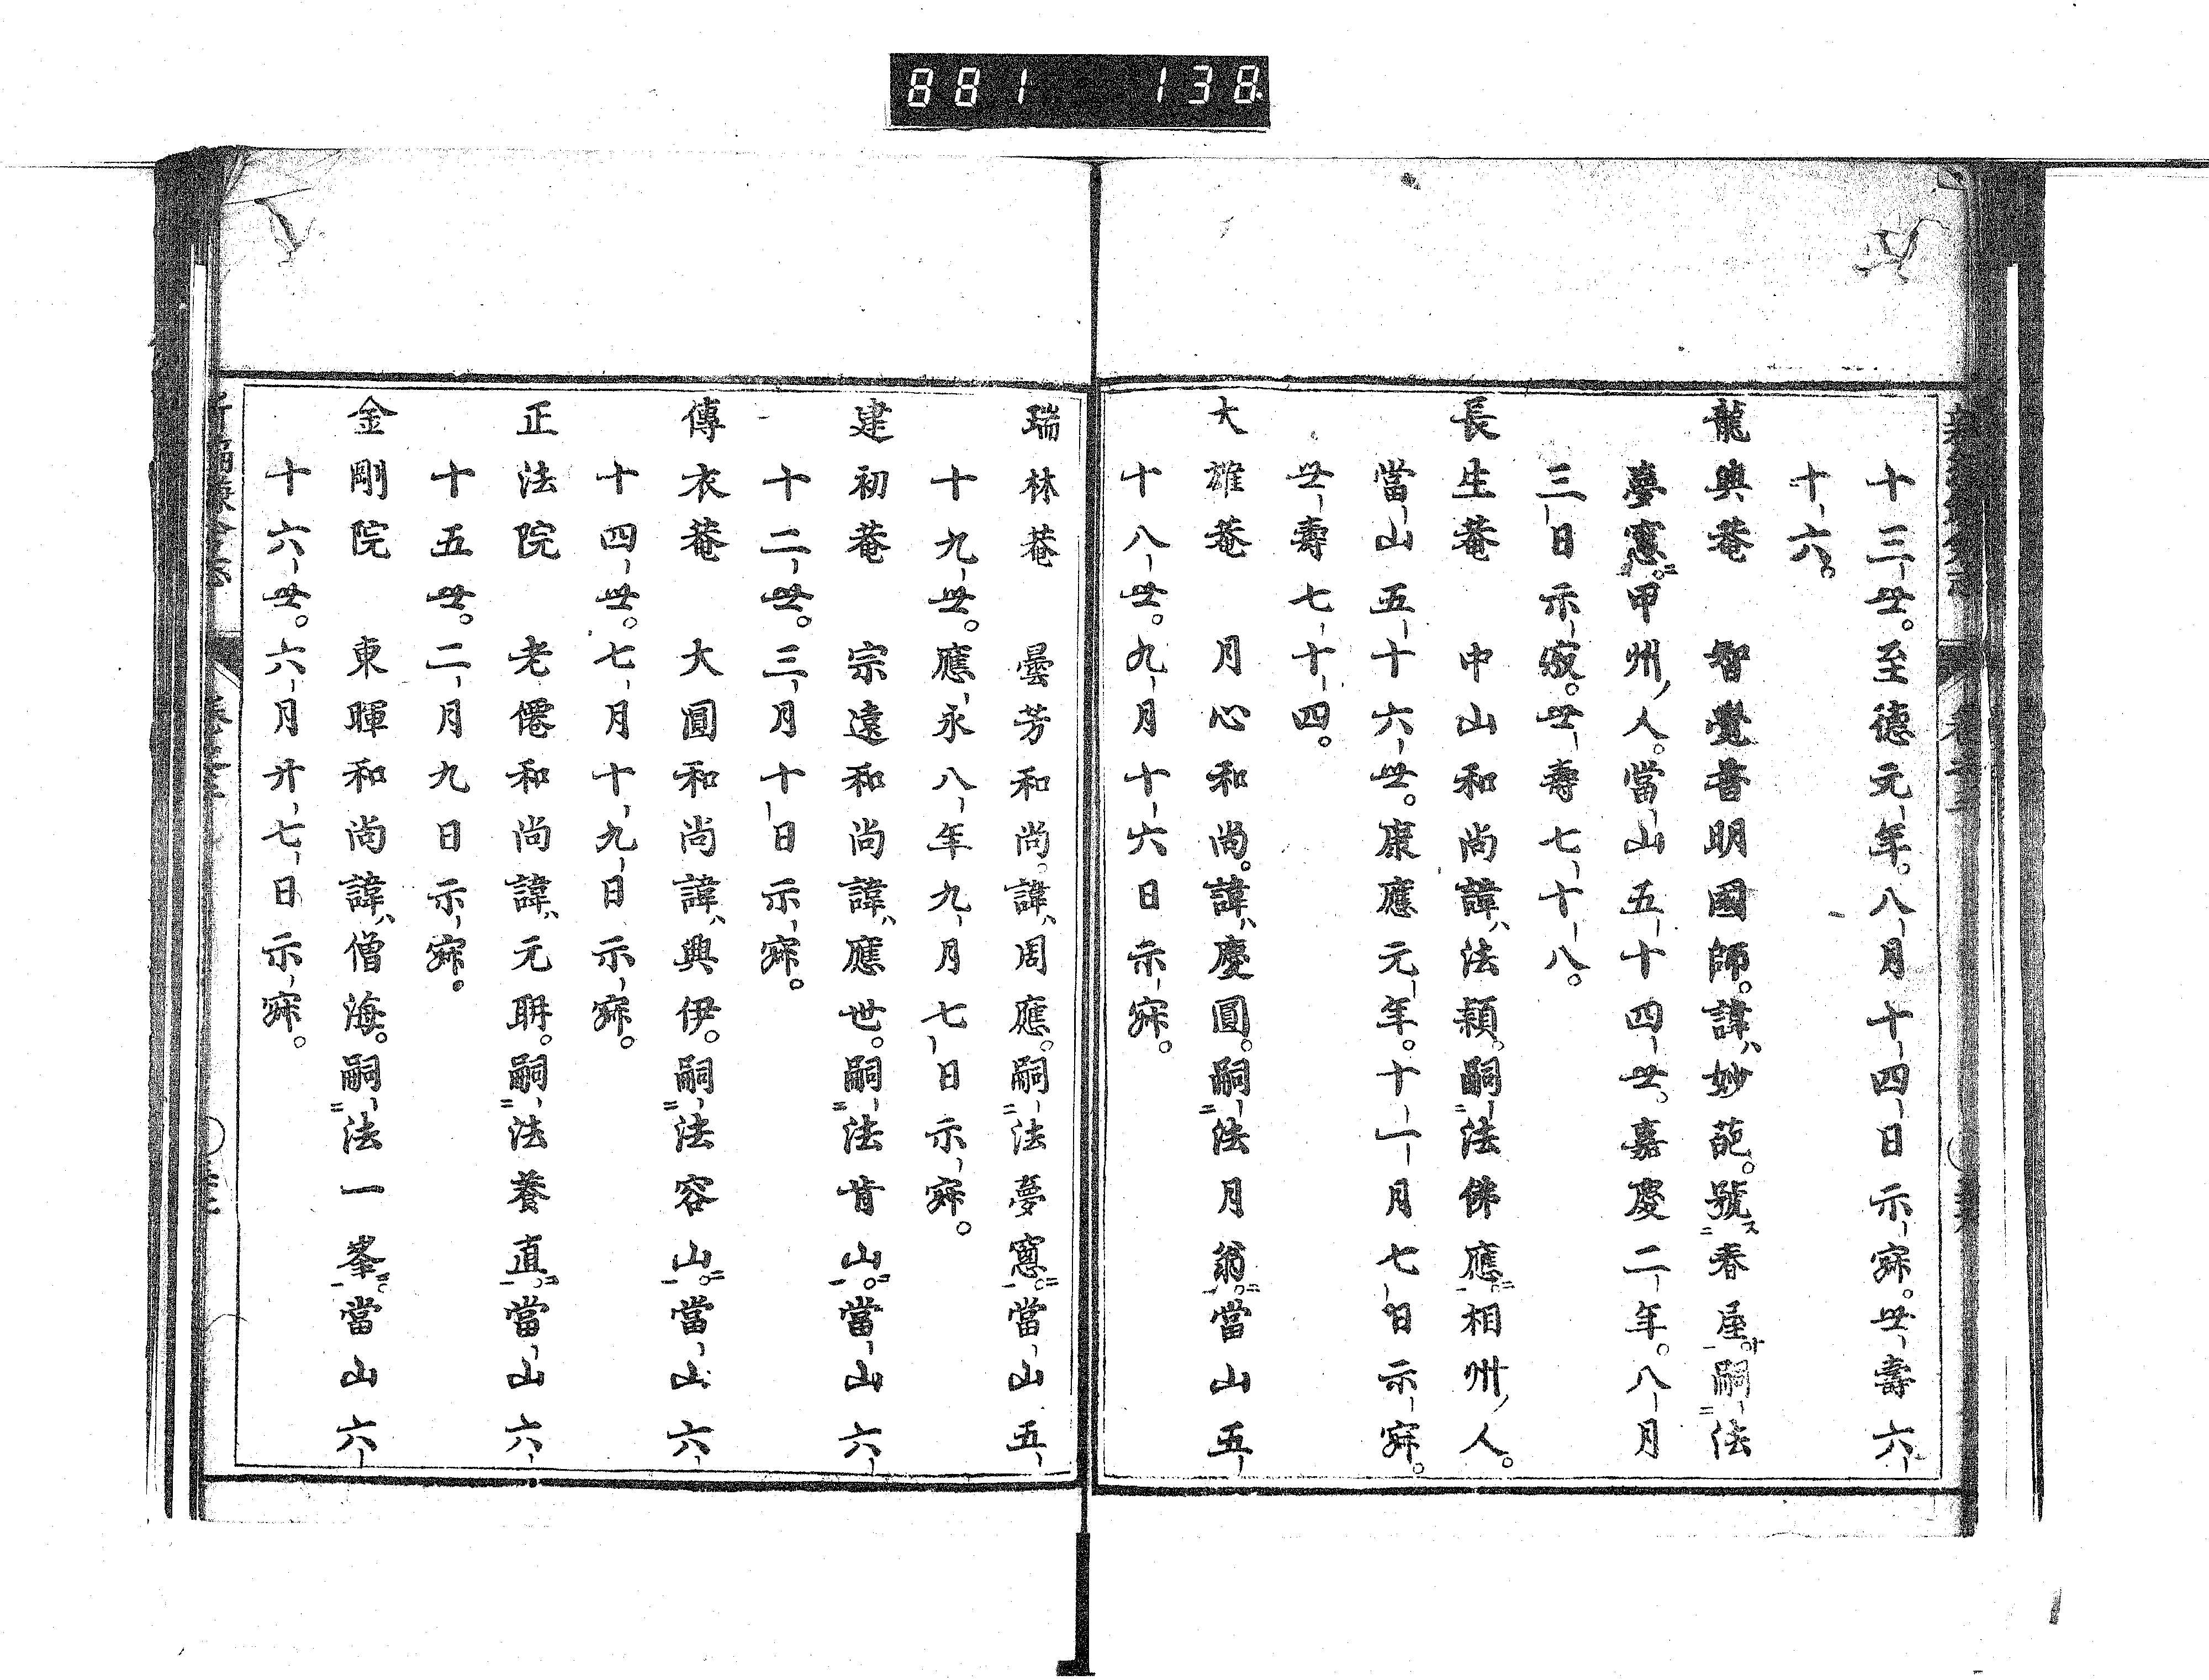 881 138
十三世。至德元年。八月十四日示寂。世壽六
十六。
龍興菴 智覺普明國師。諱妙葩。號春屋。嗣法
夢窻。甲州人。當山五十四世。嘉慶二年。八月
三日示寂。世壽七十八。
長生菴 中山和尚諱法穎。嗣法佛應。相州人。
當山五十六世。康應元年。十一月七日示寂。
世壽七十四。
大雄菴 月心和尚。諱慶圓。嗣法月翁。當山五
十八世。九月十六日示寂。
瑞林菴 曇芳和尚。諱周應。嗣法夢窻。當山五
十九世。應永八年九月七日示寂。
建初菴 宗遠和尚諱應世。嗣法肯山。當山六
十二世。三月十日示寂。
傳衣菴 大圓和尚諱興伊。嗣法容山。當山六
十四世。七月十九日示寂。
正法院 老僊和尚諱元聃。嗣法養直。當山六
十五世。二月九日示寂。
金剛院 東暉和尚諱僧海。嗣法一峯。當山六
十六世。六月廾七日示寂。